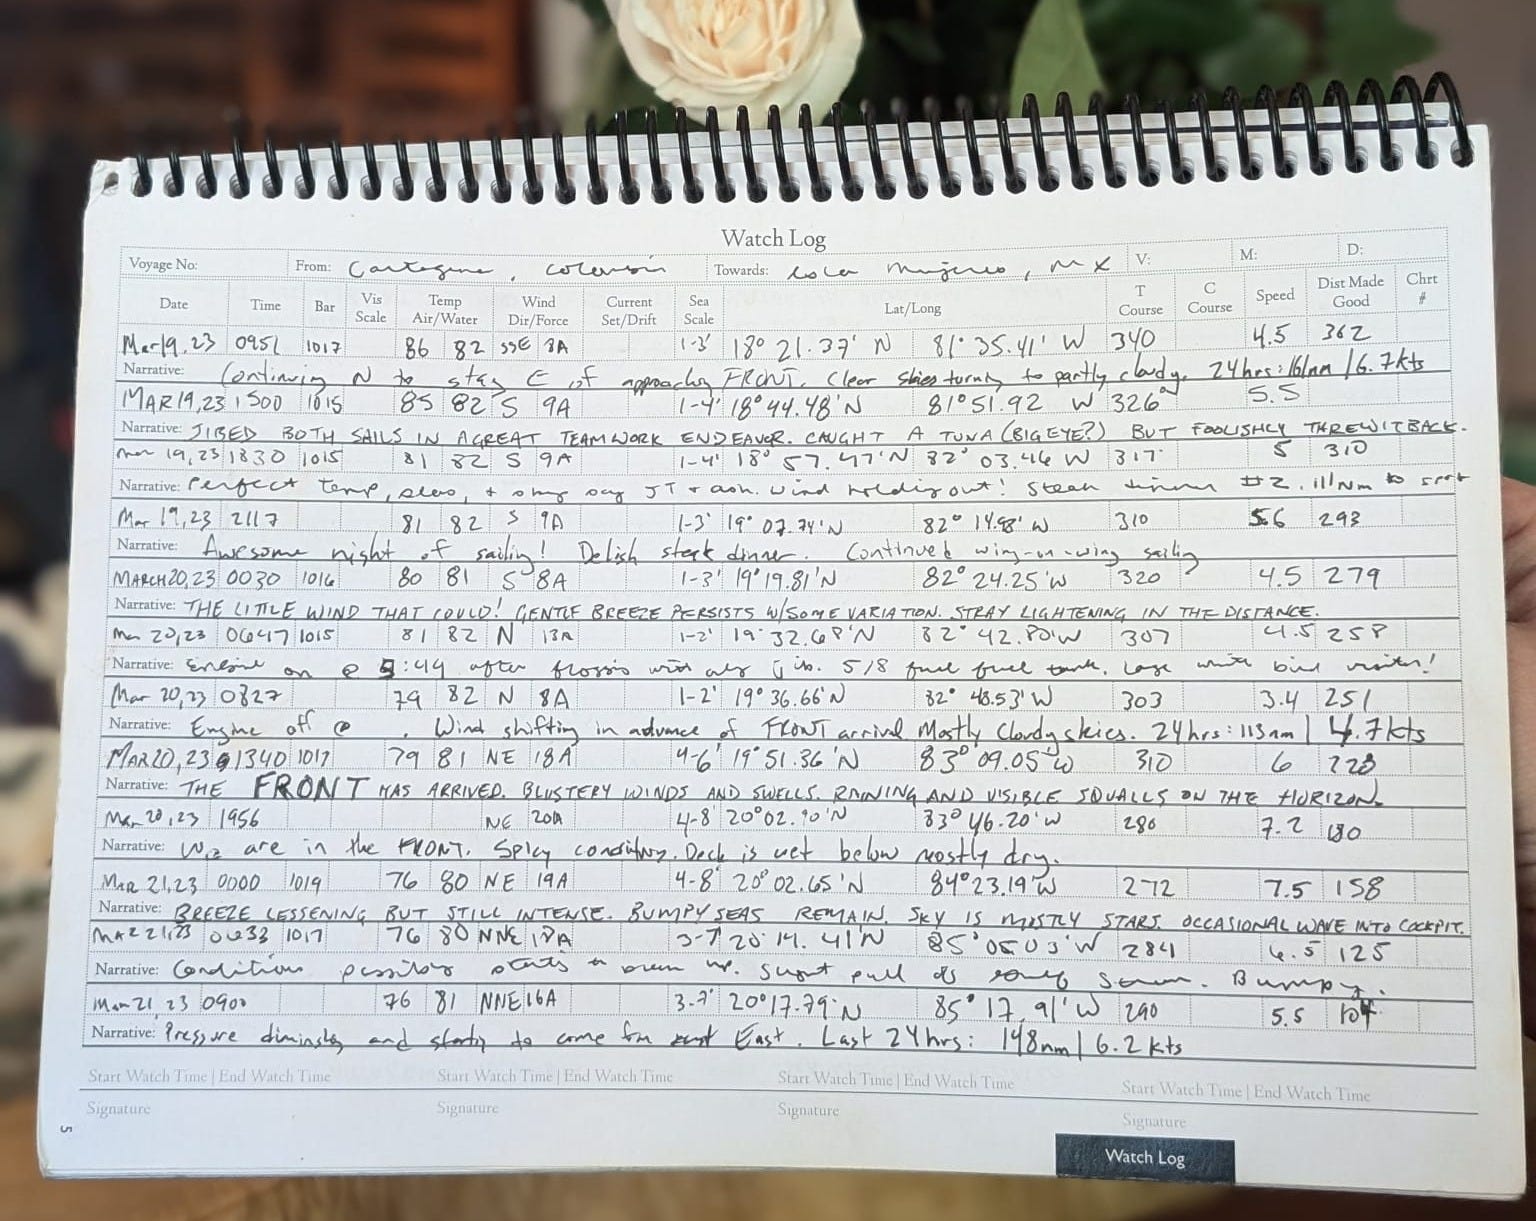 Watch Log
Voyage No: From: Cartagena, Colombia Towards: Isla Mujeres, MX V: M: D:
Date Time Bar Vis Scale Temp Air/Water Wind Dir/Force Current Set/Drift Sea Scale Lat/Long T Course C Course Speed Dist Made Good Chrt #
Mar 19, 23 0951 1017 86 82 SSE 3A 1-3' 18° 21.37' N 81° 35.41' W 340 4.5 362
Narrative: Continuing N to stay E of approaching FRONT. Clear skies turning to partly cloudy. 24hrs: 161nm / 6.7kts
MAR 19, 23 1500 1015 85 82 S 9A 1-4' 18° 44.48' N 81° 51.92 W 326 5.5
Narrative: JIBED BOTH SAILS IN A GREAT TEAMWORK ENDEAVOR. CAUGHT A TUNA (BIG EYE?) BUT FOOLISHLY THREW IT BACK.
Mar 19, 23 1830 1015 81 82 S 9A 1-4' 18° 57.47' N 82° 03.46 W 317 5 310
Narrative: Perfect temp, seas, + wind holding out! Steak dinner #2. 111Nm to
Mar 19, 23 2117 81 82 S 9A 1-3' 19° 07.74' N 82° 14.98' W 310 5.6 293
Narrative: Awesome night of sailing! Delish steak dinner. Continued wing-on-wing sailing
MARCH 20, 23 0030 1016 80 81 S 8A 1-3' 19° 19.81' N 82° 24.25' W 320 4.5 279
Narrative: THE LITTLE WIND THAT COULD! GENTLE BREEZE PERSISTS W/SOME VARIATION. STRAY LIGHTENING IN THE DISTANCE.
Mar 20, 23 0647 1015 81 82 N 13A 1-2' 19° 32.68' N 82° 42.80' W 307 4.5 258
Narrative: Engine on @ 5:44 after with jib. 5/8 fuel tank. Large white bird visitor!
Mar 20, 23 0827 79 82 N 8A 1-2' 19° 36.66' N 82° 48.53' W 303 3.4 251
Narrative: Engine off @ . Wind shifting in advance of FRONT arrival Mostly Cloudy skies. 24hrs: 113nm | 4.7kts
MAR 20, 23 1340 1017 79 81 NE 18A 4-6' 19° 51.36' N 83° 09.05' W 310 6 228
Narrative: THE FRONT HAS ARRIVED. BLUSTERY WINDS AND SWELLS. RAINING AND VISIBLE SQUALLS ON THE HORIZON.
Mar 20, 23 1956 NE 20A 4-8' 20° 02.90' N 83° 46.20' W 280 7.2 180
Narrative: We are in the FRONT. Spicy conditions. Deck is wet below mostly dry.
MAR 21, 23 0000 1019 76 80 NE 19A 4-8' 20° 02.65' N 84° 23.19' W 272 7.5 158
Narrative: BREEZE LESSENING BUT STILL INTENSE. BUMPY SEAS REMAIN. SKY IS MOSTLY STARS. OCCASIONAL WAVE INTO COCKPIT.
MAR 21, 23 0633 1017 76 80 NNE 18A 3-7' 20° 14.41' N 85° 05.03' W 284 6.5 125
Narrative: Conditions possibly Bumpy.
Mar 21, 23 0900 76 81 NNE 16A 3-7' 20° 17.79' N 85° 17.91' W 290 5.5 104
Narrative: Pressure diminishing and starting to come from East. Last 24hrs: 148nm | 6.2kts
Start Watch Time | End Watch Time Start Watch Time | End Watch Time Start Watch Time | End Watch Time Start Watch Time | End Watch Time
Signature Signature Signature Signature
5
Watch Log